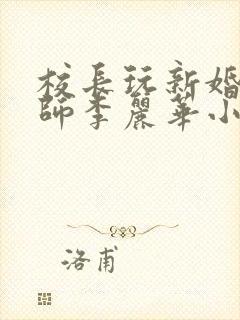 校長玩新婚
師李麗華小
洛甫